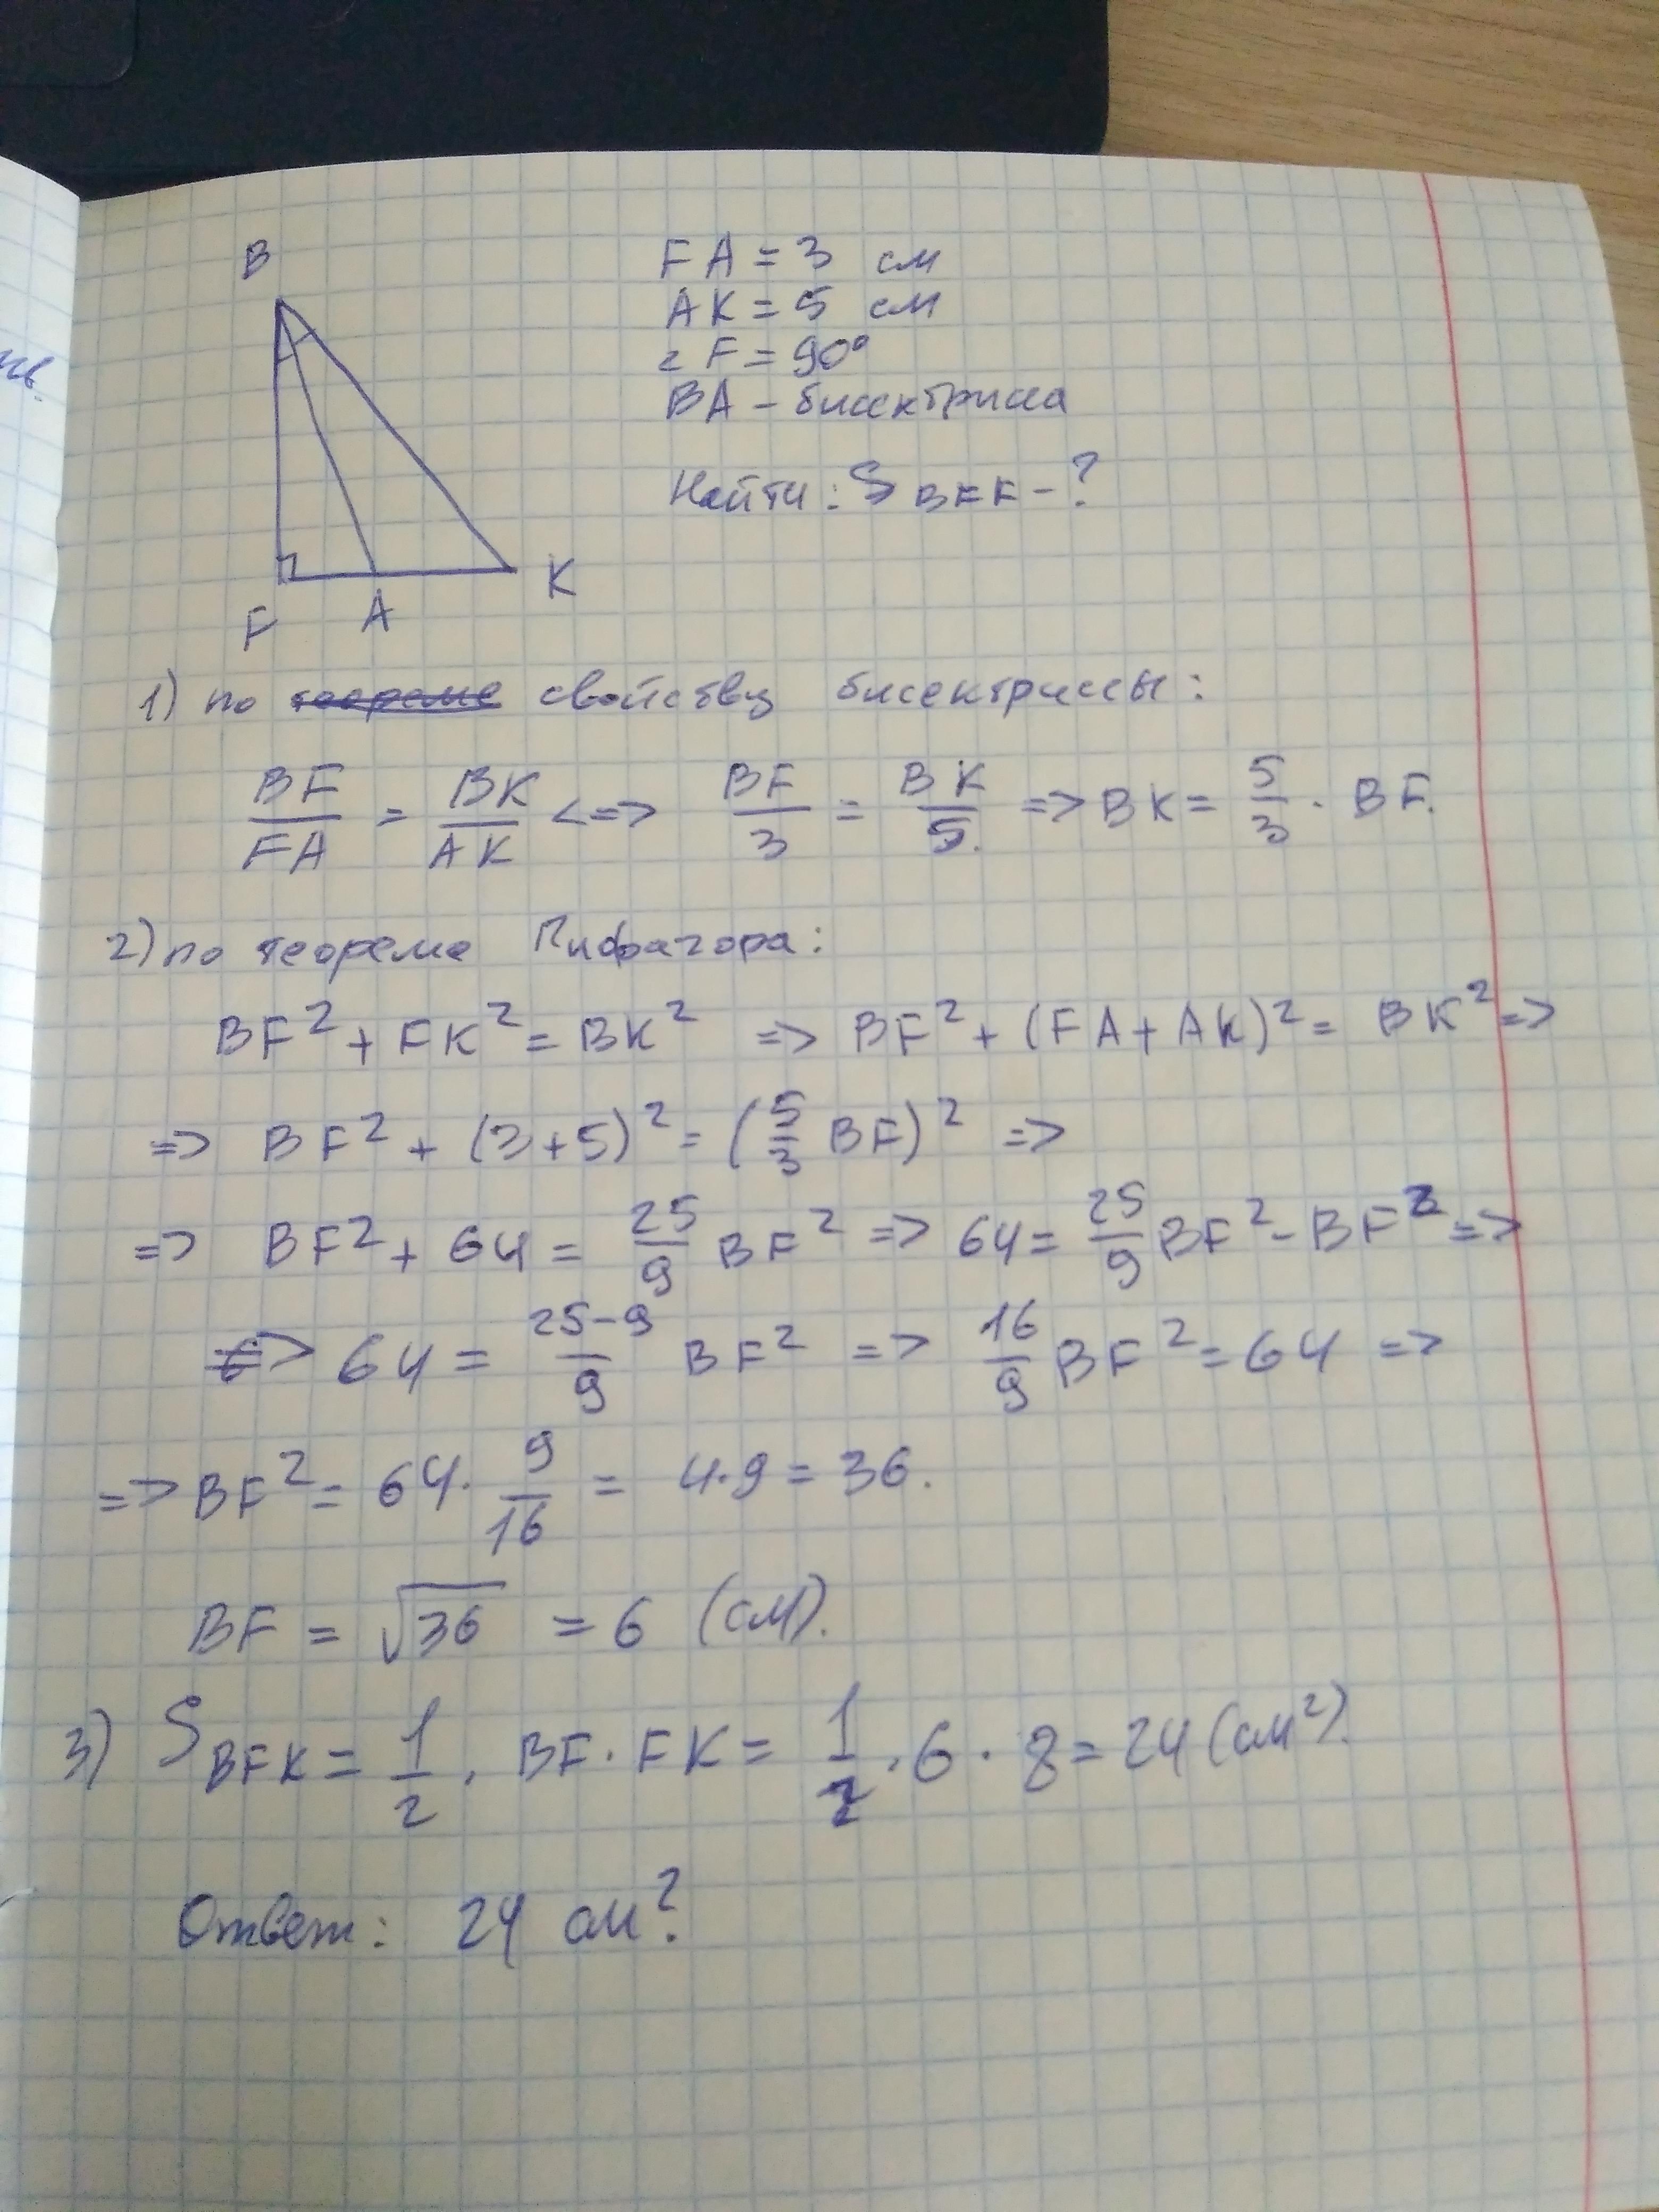 B
FA = 3 см
AK = 5 см
∠F = 90°
BA - биссектрисса
Найти: S BFK - ?
K
F A
1) по теореме свойству бисектриссы:
BF/FA = BK/AK <=> BF/3 = BK/5. => BK = 5/3 · BF.
2) по теореме Пифагора:
BF² + FK² = BK² => BF² + (FA + AK)² = BK² =>
=> BF² + (3+5)² = (5/3 BF)² =>
=> BF² + 64 = 25/9 BF² => 64 = 25/9 BF² - BF² =>
=> 64 = 25-9/9 BF² => 16/9 BF² = 64 =>
=> BF² = 64 · 9/16 = 4·9 = 36.
BF = √36 = 6 (см).
3) S BFK = 1/2 · BF · FK = 1/2 · 6 · 8 = 24 (см²).
Ответ: 24 см².